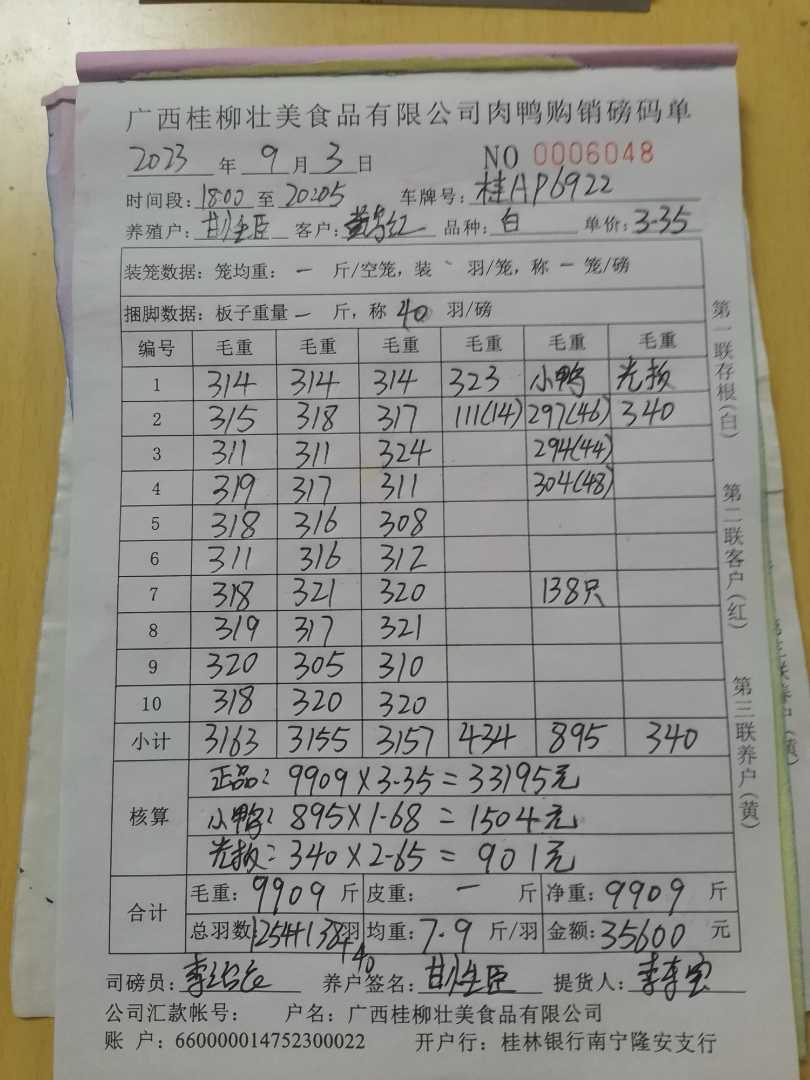 广西桂柳壮美食品有限公司肉鸭购销磅码单
2023 年 9 月 3 日 NO 0006048
时间段:18:00 至 20205 车牌号:桂AP6922
养殖户: 客户: 品种:白 单价:3-35
装笼数据:笼均重:一 斤/空笼,装 羽/笼,称 一 笼/磅
捆脚数据:板子重量 一 斤,称 40 羽/磅
编号 毛重 毛重 毛重 毛重 毛重 毛重
1 314 314 314 323 小鸭 光板
2 315 318 317 111(14) 297(46) 340
3 311 311 324 294(44)
4 319 317 311 304(48)
5 318 316 308
6 311 316 312
7 318 321 320 138只
8 319 317 321
9 320 305 310
10 318 320 320
小计 3163 3155 3157 434 895 340
核算 正品:9909×3-35=33195元
小鸭:895×1-68=1504元
光板:340×2-65=901元
合计 毛重:9909 斤 皮重:一 斤 净重:9909 斤
总羽数:1254+138+40 羽 均重:7.9 斤/羽 金额:35600 元
司磅员: 养户签名: 提货人:
公司汇款帐号: 户名:广西桂柳壮美食品有限公司
账 户:660000014752300022 开户行:桂林银行南宁隆安支行
第一联存根(白)
第二联客户(红)
第三联养户(黄)